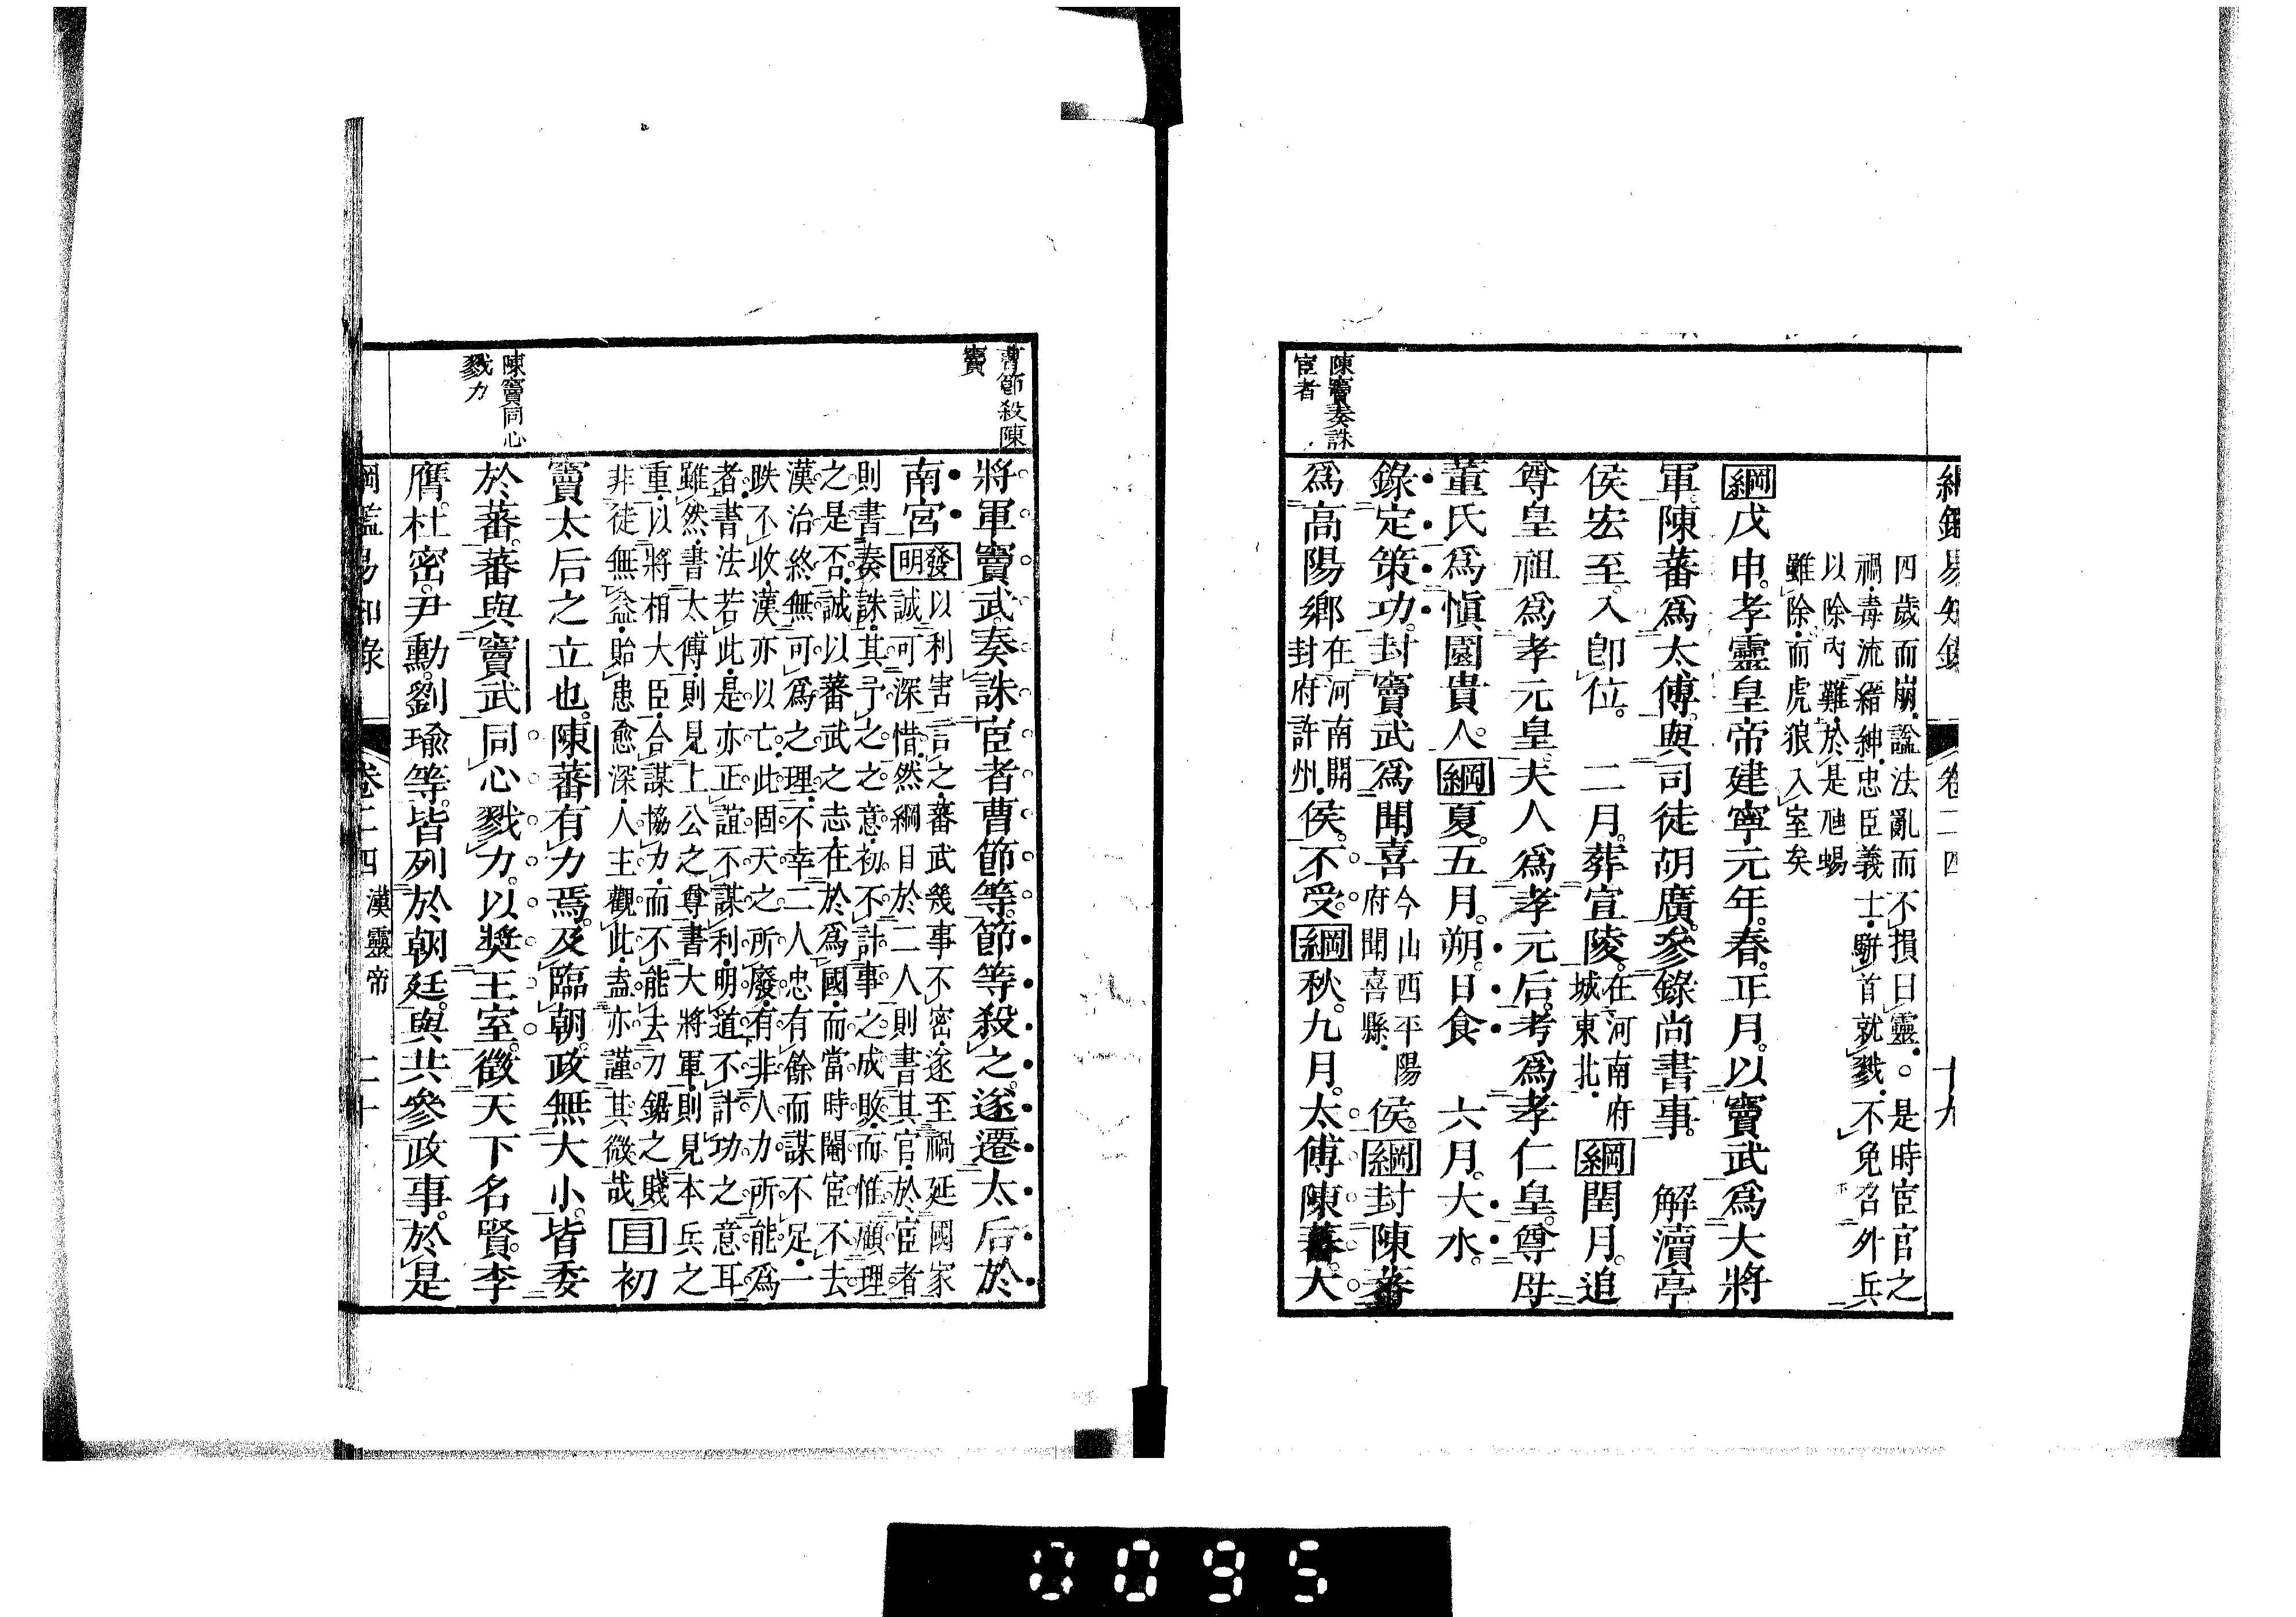 綱鑑易知錄 卷二四 十九
四歲而崩諡法亂而不損曰靈。是時宦官之
禍毒流縉紳忠臣義士駢首就戮不免召外兵
以除內難於是虺蜴
雖除而虎狼入室矣
綱戊申孝靈皇帝建寧元年春正月以竇武爲大將
軍陳蕃爲太傅與司徒胡廣參錄尚書事 解瀆亭
侯宏至入卽位 二月葬宣陵在河南府
城東北綱閏月追
尊皇祖爲孝元皇夫人爲孝元后考爲孝仁皇尊母
董氏爲愼園貴人綱夏五月朔日食 六月大水
錄定策功封竇武爲聞喜今山西平陽
府聞喜縣侯綱封陳蕃
爲高陽鄉在河南開
封府許州侯不受綱秋九月太傅陳蕃大
陳竇奏誅
宦者
曹節殺陳
竇
將軍竇武奏誅宦者曹節等節等殺之遂遷太后於
南宮發明以利害言之蕃武幾事不密遂至禍延國家
誠可深惜然綱目於二人則書其官於宦者
則書奏誅其予之之意初不計事之成敗而惟顧理
之是否誠以蕃武之志在於爲國而當時閹宦不去
漢治終無可爲之理不幸二人忠有餘而謀不足一
跌不收漢亦以亡此固天之所廢有非人力所能爲
者書法若此是亦正誼不謀利明道不計功之意耳
雖然書太傅則見上公之尊書大將軍則見本兵之
重以將相大臣合謀協力而不能去刀鋸之賤
非徒無益貽患愈深人主觀此盍亦謹其微哉目初
竇太后之立也陳蕃有力焉及臨朝政無大小皆委
於蕃蕃與竇武同心戮力以獎王室徵天下名賢李
膺杜密尹勳劉瑜等皆列於朝廷與共參政事於是
陳竇同心
戮力
綱鑑易知錄 卷二四 漢靈帝 二十
0095